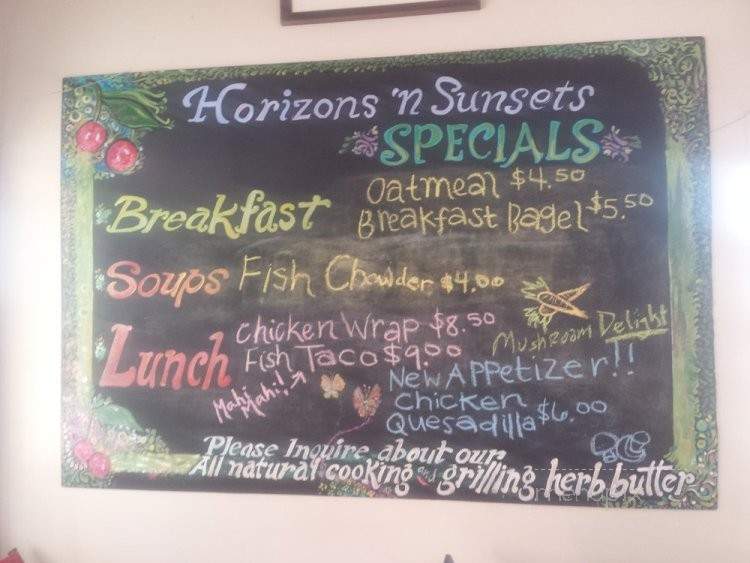 Horizons 'n Sunsets
SPECIALS
Breakfast
Oatmeal $4.50
Breakfast Bagel $5.50
Soups
Fish Chowder $4.00
Lunch
Chicken Wrap $8.50
Fish Taco $9.00
Mahi
Mahi!
Mushroom Delight
New Appetizer!!
Chicken
Quesadilla $6.00
Please Inquire about our
All natural cooking and grilling herb butter